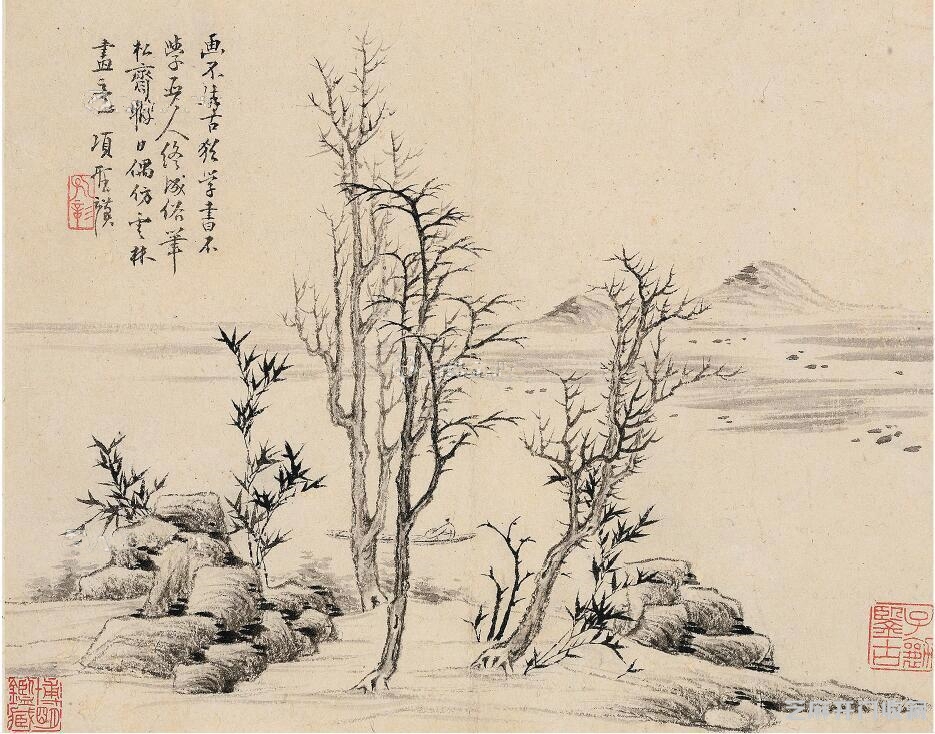 画不法古犹学書不
學晋人終成俗筆
松齋暇日偶仿雲林
畫意 項聖謨
孔彰